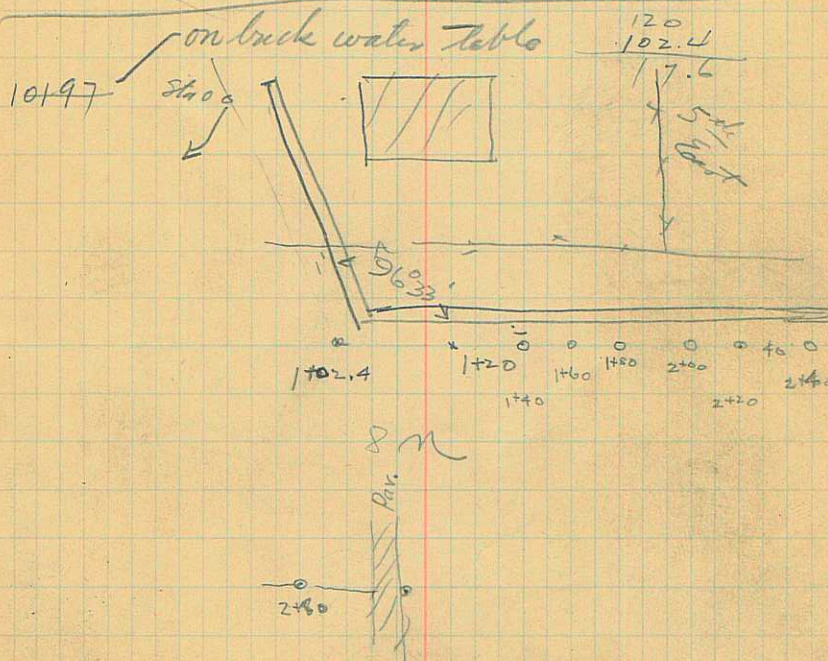 on brick water table
101.97
Sta 0.0
120
102.4
17.6
1'
56°33'
1+02.4
1+20
1+40
1+60
1+80
2+00
2+20
40
2+40
8
Par.
2+80